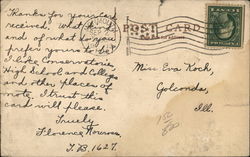 Thanks for your card
received. What
and of what do you
prefer yours to be
I like Conservatories,
High School and College
and other places of
note. I trust this
card will please.
Truely
Florence
T.B. 1627.
POST CARD
Miss Eva Koch,
Golconda,
Ill.